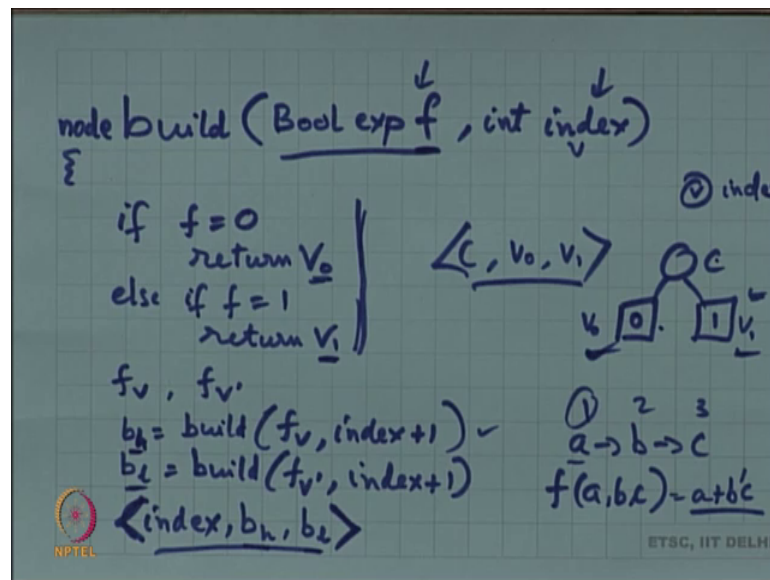 node build (Bool exp f, int index)
{
v
ⓥ inde
if f = 0
return V₀
else if f = 1
return V₁
<C, V₀, V₁>
C
V₀ 0 1 V₁
f_v, f_v'
b_h = build(f_v, index+1)
b_l = build(f_v', index+1)
<index, b_h, b_l>
① 2 3
a → b → c
f(a,b,c) = a+b'c
NPTEL
ETSC, IIT DELH